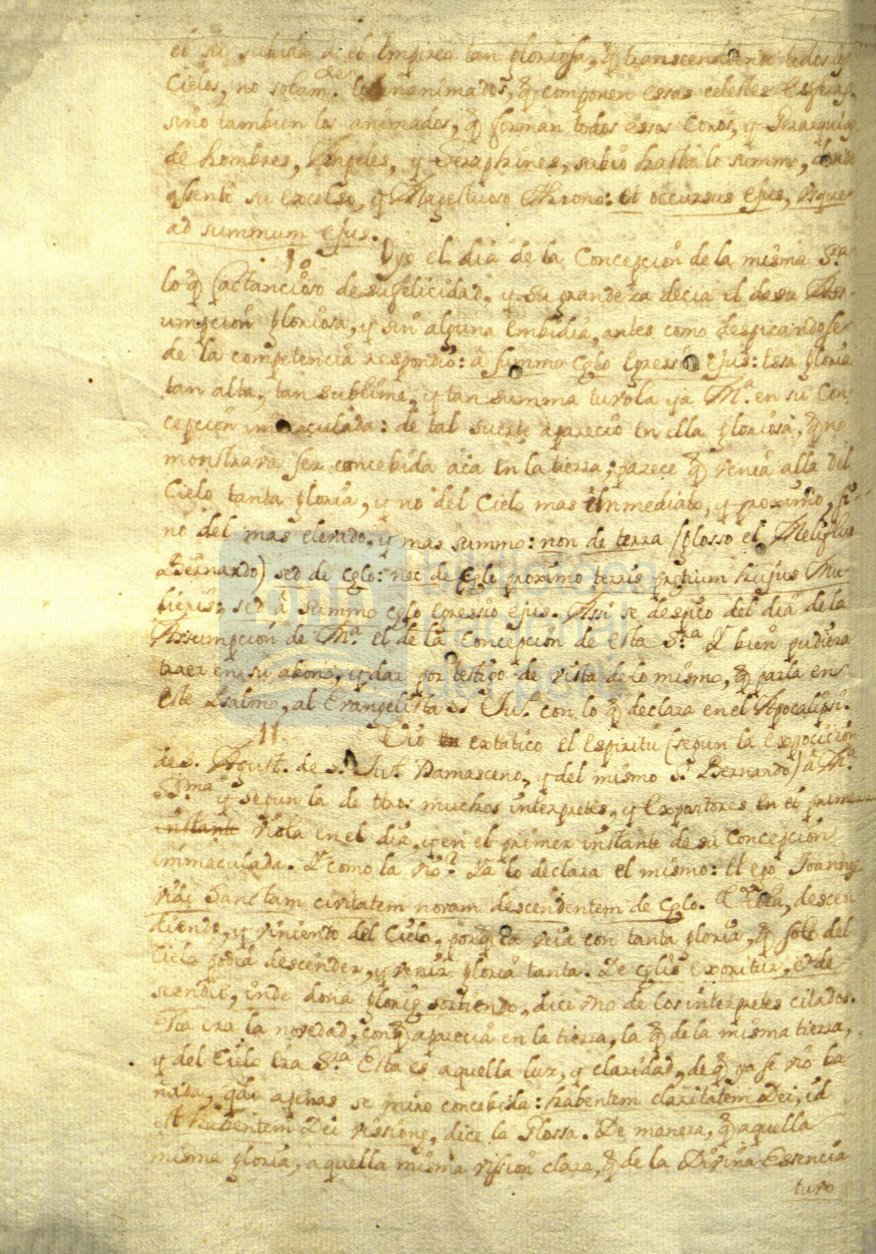 el su subida à el Impireo tan gloriosa, q̃ transcendiendo todos los
Cielos, no solam.te los inanimados, q̃ componen essas celestes Esferas,
sino tambien los animados, q̃ forman todos essos Coros, y Gerarquias
de hombres, Angeles, y Seraphines, subio hasta lo summo, donde
assentò su excelso, y Magestuoso Throno: et occursus ejus, usque
ad summum ejus.
10 Oyó el dia de la Concepcion de la misma S.ra
lo q̃ jactancioso de su felicidad, y su grandeza decia el de su Ass-
umpcion gloriosa, y sin alguna embidia, antes como despicandose
de la competencia respondiò: à summo Cęlo Egressio ejus: essa gloria
tan alta, tan sublime, y tan summa tuvola ya M.a en su Con-
cepcion immaculada: de tal suerte apareciò en ella gloriosa, q̃ no
monstrara ser concebida acà en la tierra; parece q̃ venia allà del
Cielo tanta gloria, y no del Cielo mas immediato, y proximo, si
no del mas elevado, y mas summo: non de terra (glossò el Melifluo
Bernardo) sed de Cęlo: nec de Cęlo proximo terris hujus Mu-
lieris: sed à summo cęlo egressio ejus. Assi se despicò del dia de la
Assumpcion de M.a el de la Concepcion de esta S.ra Y bien pudiera
traer en su abono, y dar por testigo de vista de lo mismo, q̃ parla en
este Psalmo, al Evangelista S. Ju.o con lo q̃ declara en el Apocalipsi.
11. Viò extatico el Espiritu (segun la exposicion
de S. Agust. de S. Ju.o Damasceno, y del mismo S. Bernardo) à M.a
SS.ma y segun la de otros muchos interpretes, y Expositores en el primer
instante viola en el dia, y en el primer instante de su Concepcion
immaculada. Y como la viò? Ya lo declara el mismo: Et ego Joannes
vidi Sanctam civitatem novam descendentem de Cęlo. Viola, descen
diendo, y viniendo del Cielo, porq̃ la veia con tanta gloria, q̃ solo del
Cielo podia descender, y venir gloria tanta. De cęlo exoritur, et de
scendit, inde dona glorię sortiendo, dice uno de los interpretes citados.
Esta era la novedad, con q̃ aparecia en la tierra, la q̃ de la misma tierra,
y del Cielo era S.ra Esta es aquella luz, y claridad, de q̃ ya se viò ba
ñada, q̃do apenas se mirò concebida: habentem claritatem Dei, id
est habentem Dei vissionẽ, dice la Glossa. De manera, q̃ aquella
misma gloria, aquella misma vission clara, q̃ de la Divina Essencia
tuvo